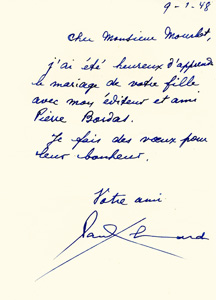 9-1-48
Cher Monsieur Mourlot,
j'ai été heureux d'apprendre
le mariage de votre fille
avec mon éditeur et ami
Pierre Bordas.
Je fais des vœux pour
leur bonheur.
Votre ami
Paul Eluard